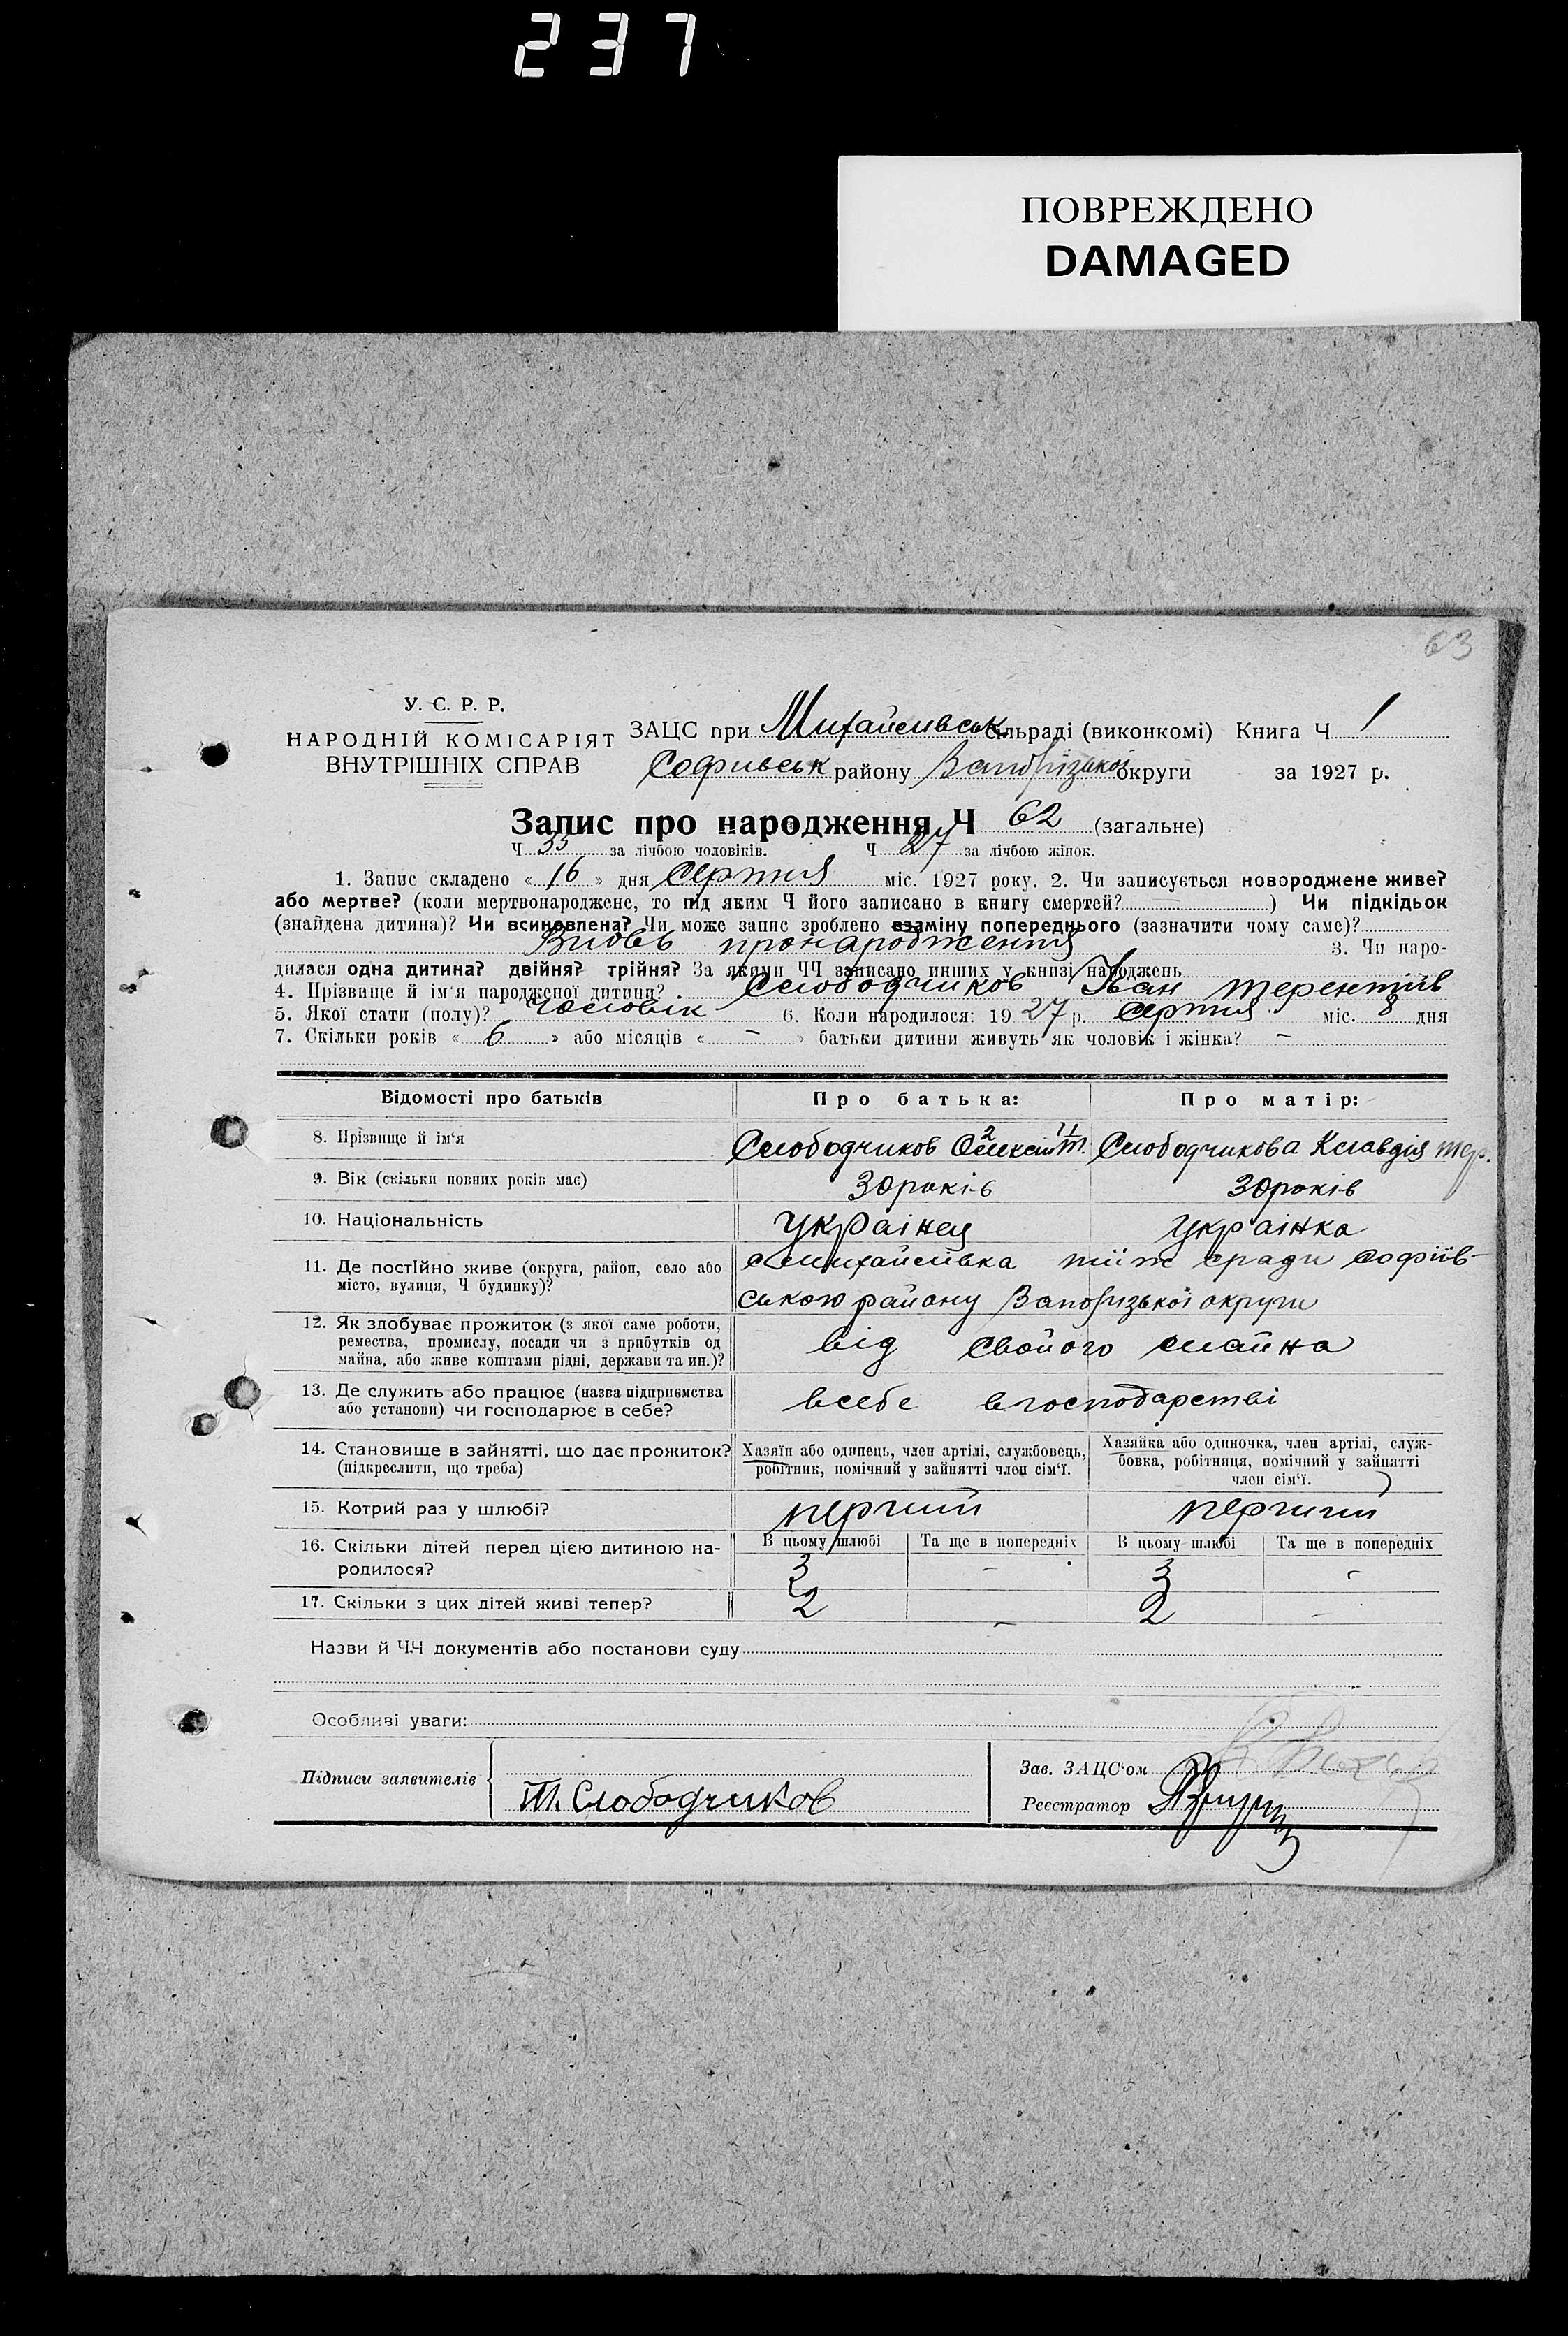 237
ПОВРЕЖДЕНО
DAMAGED
63
У. С. Р. Р.
НАРОДНІЙ КОМІСАРІЯТ
ВНУТРІШНІХ СПРАВ
ЗАЦС при Михайливськ сільраді (виконкомі) Книга Ч 1
Софивськ району Запорізької округи за 1927 р.
Запис про народження Ч 62 (загальне)
Ч 35 за лічбою чоловіків. Ч 27 за лічбою жінок.
1. Запис складено « 16 » дня Серпня міс. 1927 року. 2. Чи записується новороджене живе?
або мертве? (коли мертвонароджене, то під яким Ч його записано в книгу смертей? — ) Чи підкідьок
(знайдена дитина)? Чи всиновлена? Чи може запис зроблено взаміну попереднього (зазначити чому саме)?
Вновь пронародження 3. Чи наро-
дилася одна дитина? двійня? трійня? За якими ЧЧ записано инших у книзі народжень
4. Прізвище й ім'я народженої дитини? Слободчиков Іван Терентіїв
5. Якої стати (полу)? Чоловік 6. Коли народилося: 1927 р. Серпня міс. 8 дня
7. Скільки років « 6 » або місяців « — » батьки дитини живуть як чоловік і жінка? —
Відомості про батьків Про батька: Про матір:
8. Прізвище й ім'я Слободчиков Олексій Т. Слободчикова Клавдія Тер.
2 11
9. Вік (скільки повних років має) 30 років 30 років
10. Національність Українец Українка
11. Де постійно живе (округа, район, село або
місто, вулиця, Ч будинку)?
с Михайлівка тїїж сради Софіїв-
ського району Запорізької округи
12. Як здобуває прожиток (з якої саме роботи,
ремества, промислу, посади чи з прибутків од
майна, або живе коштами рідні, держави та ин.)?
від свойого майна
13. Де служить або працює (назва підприємства
або установи) чи господарює в себе?
всебе вгосподарстві
14. Становище в зайнятті, що дає прожиток?
(підкреслити, що треба)
Хазяїн або одинець, член артілі, службовець,
робітник, помічний у зайнятті член сім'ї.
Хазяйка або одиночка, член артілі, служ-
бовка, робітниця, помічний у зайнятті
член сім'ї.
15. Котрий раз у шлюбі? перший перший
16. Скільки дітей перед цією дитиною на-
родилося?
В цьому шлюбі Та ще в попередніх В цьому шлюбі Та ще в попередніх
3 - 3 -
17. Скільки з цих дітей живі тепер? 2 — 2 —
Назви й Ч.Ч документів або постанови суду
Особливі уваги:
Підписи заявителів
Т. Слободчиков
Зав. ЗАЦС'ом
Реєстратор